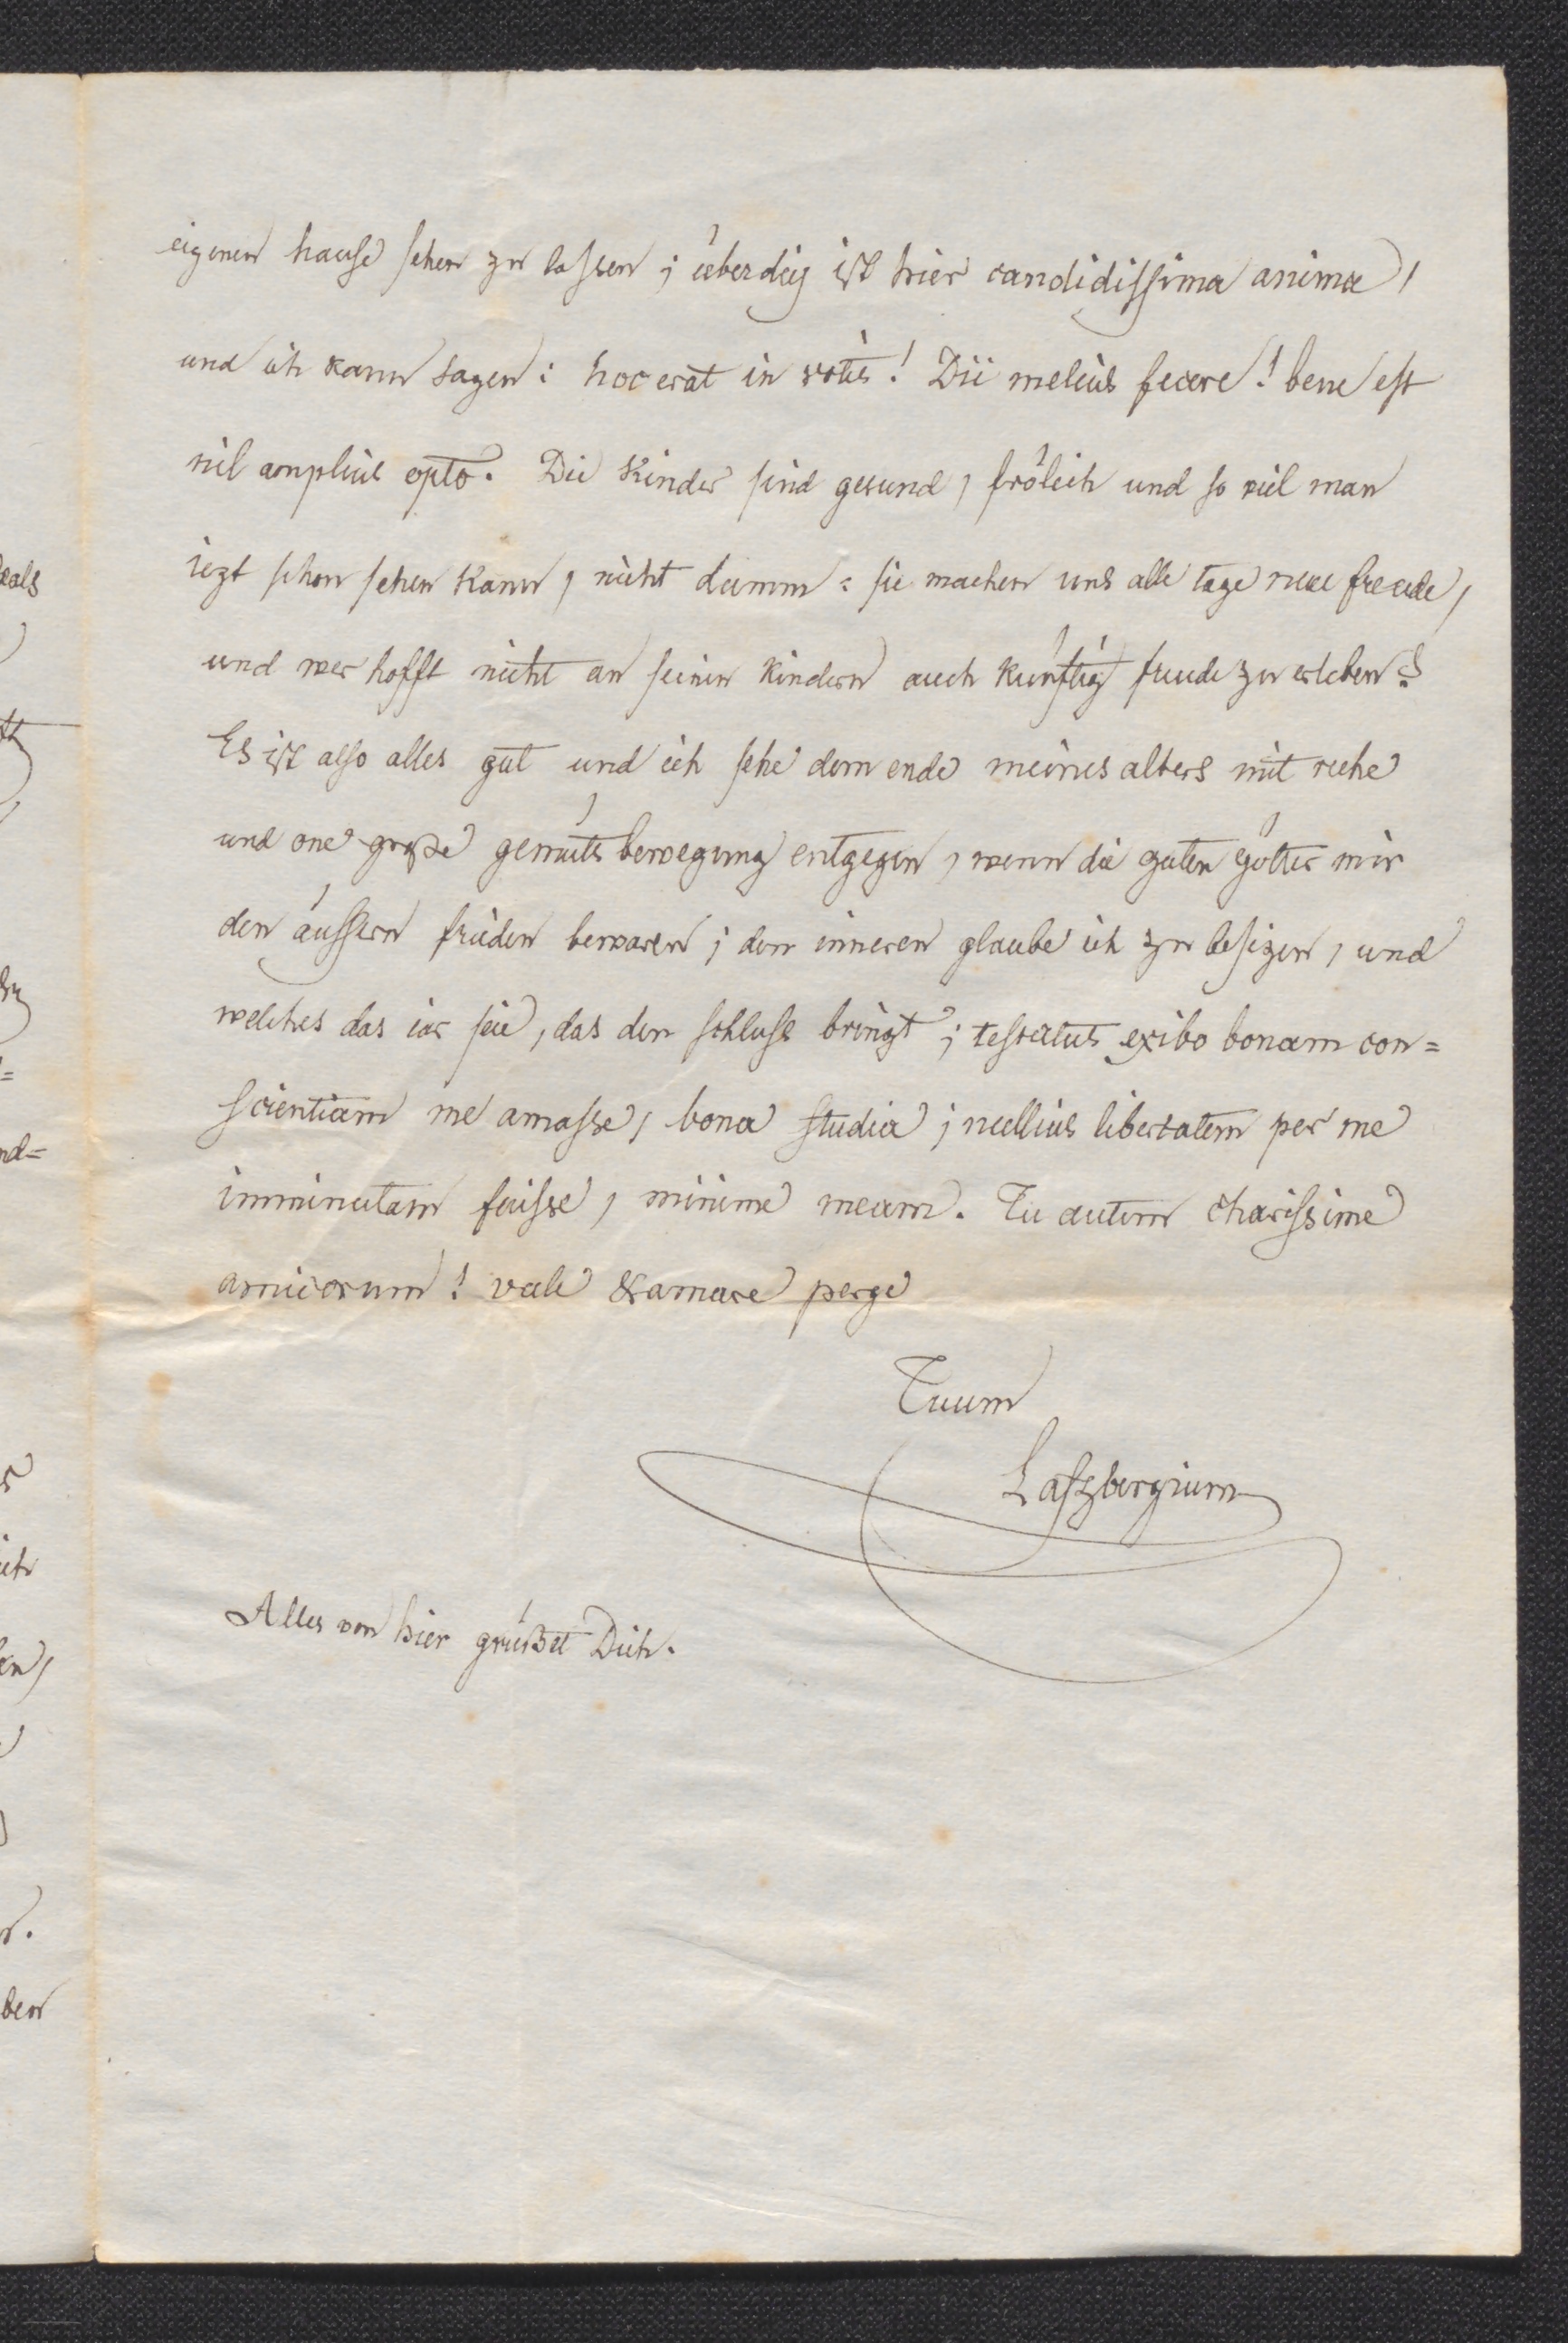 eigenen hause sehen zu lassen; überdiß ist hier candidissima anima,
und ich kann sagen: hoc erat in votis! Dii melius fecere! bene est
nil amplius opto. Die Kinder sind gesund, frölich und so viel man
iezt schon sehen kann, nicht dumm: sie machen uns alle tage neue freude,
und wer hofft nicht an seinen kindern auch künftig freude zu erleben?
Es ist also alles gut und ich sehe dem ende meines alters mit ruhe
und one große gemütsbewegung entgegen, wenn die guten götter mir
den äussern frieden bewaren; den inneren glaube ich zu besizen, und
welches das iar seie, das den schluss bringt; testatus exibo bonam con=
scientiam me amasse, bona studia; nullius libertatem per me
imminutam fuisse, minime meam. Tu autem charissime
amicorum! vale & amare perge
Tuum
Laszbergium
Alles von hier grüßet Dich.